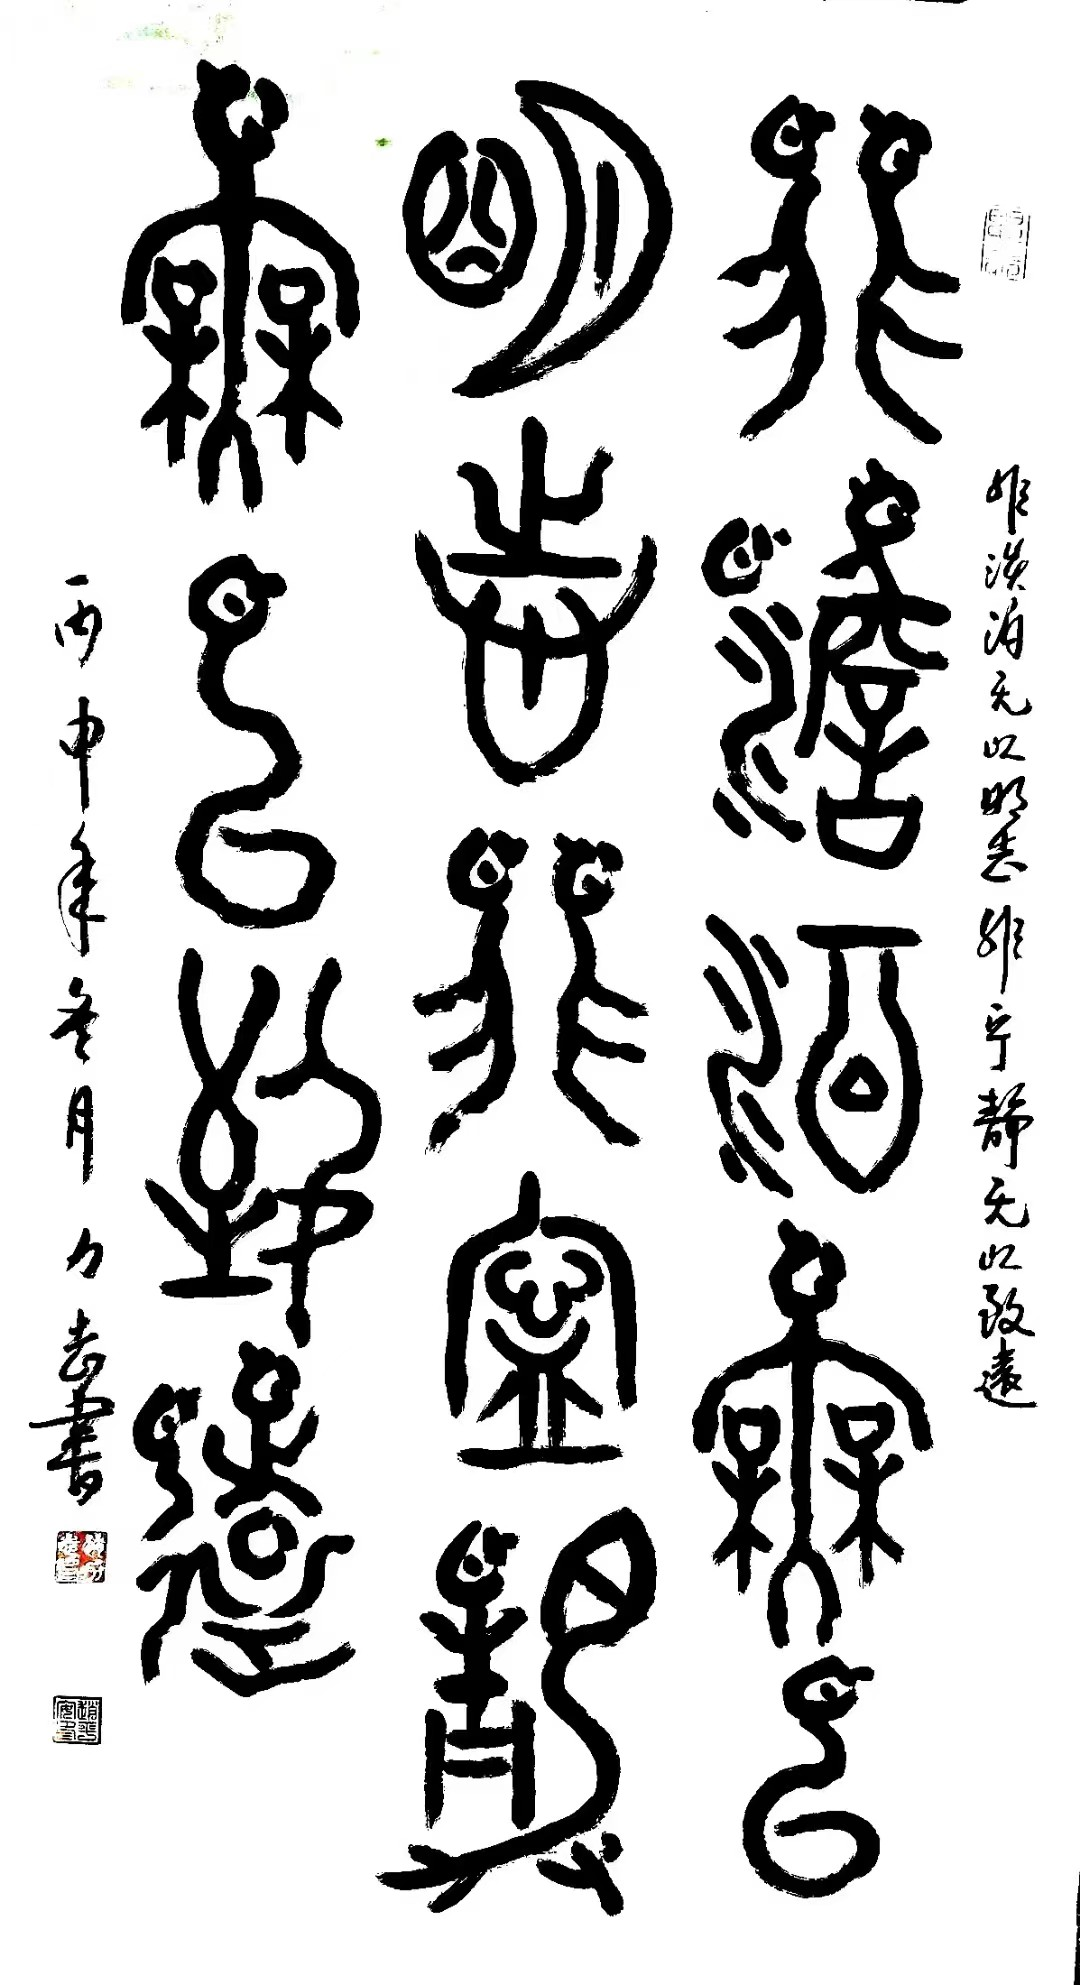 非淡泊无以明志非宁静无以致遠
非澹泊無以
明志非寧靜
無以致遠
丙申年冬月力志書